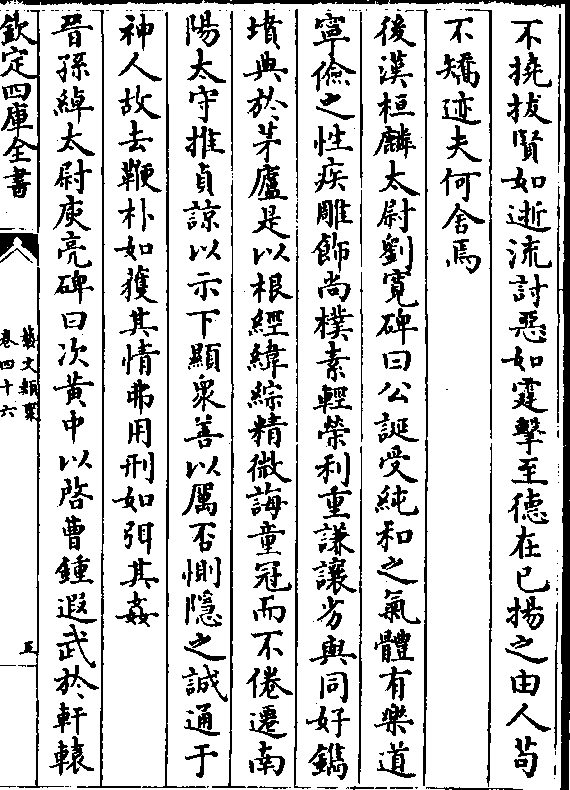 不撓拔賢如逝流討惡如霆擊至德在已揚之由人苟
不矯迹夫何舍焉
後漢桓麟太尉劉寬碑曰公誕受純和之氣體有樂道
寧儉之性疾雕飾尚樸素輕榮利重謙讓劣與同好鐫
墳典於茅廬是以根經緯綜精微誨童冠而不倦遷南
陽太守推貞諒以示下顯衆善以厲否惻隱之誠通于
神人故去鞭朴如獲其情弗用刑如弭其姦
晉孫綽太尉庾亮碑曰次黄中以啓曹鍾遐武於軒轅
欽定四庫全書
藝文類聚
卷四十六
五